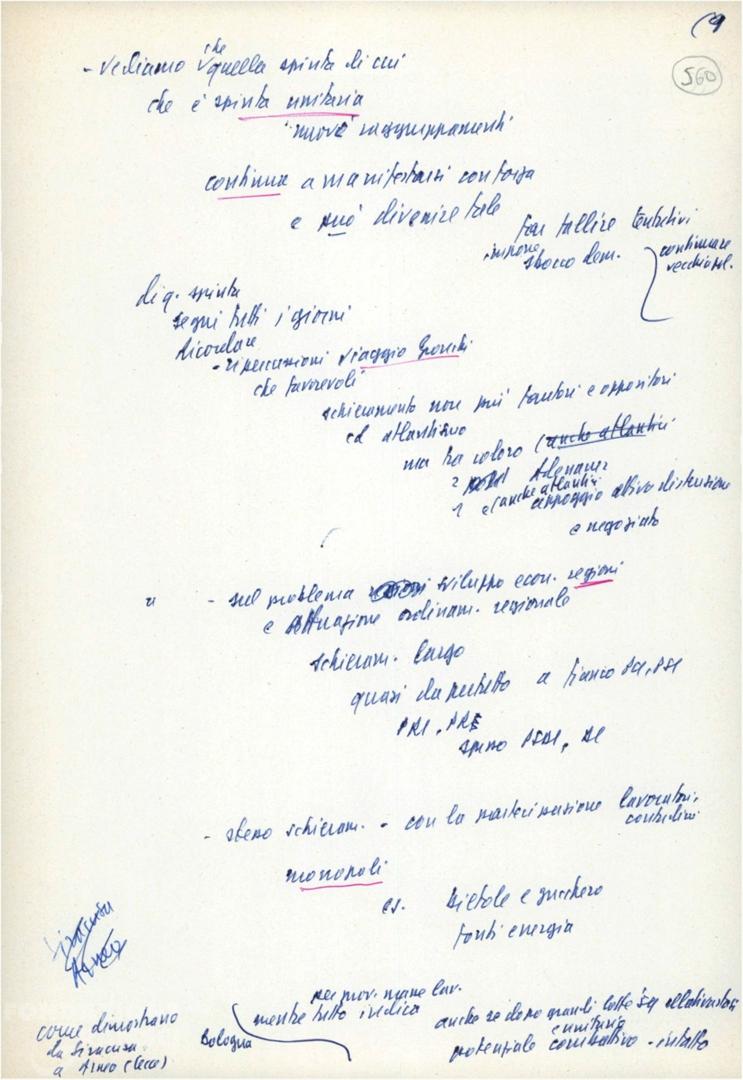 (9
560
- vediamo che quella spinta di cui
che è spinta unitaria
nuovi raggruppamenti
continua a manifestarsi con forza
e può divenire tale
far fallire tentativi
imporre
sbocco dem.
continuare
vecchia pol.
di q. spinta
segni tutti i giorni
ricordare
- ripercussioni viaggio Gronchi
che favorevoli
schieramento non più fautori e oppositori
ad atlantismo
ma tra coloro (anche atlantici
2 Adenauer
1 e (anche atlantici
appoggio attivo distensione
e negoziato
" - sul problema sviluppo econ. regioni
e attuazione ordinam. regionale
schieram. largo
quasi dappertutto a fianco PCI, PSI
PRI, PR
spesso PSDI, DC
- stesso schieram. - con la partecipazione lavoratori,
contadini
monopoli
es. Bietole e zucchero
fonti energia
Siracusa
Arneo
come dimostrano
da Siracusa
a Arneo (Lecce)
Bologna
mentre tutto indica
anche se dopo grandi lotte
e unitario
potenziale combattivo - intatto